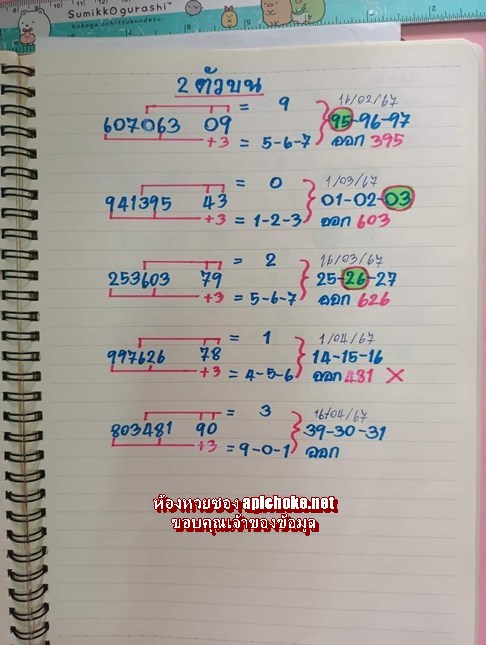 Sumikkogurashi™
2 ตัวบน
= 9
16/02/67
607063 09
95-96-97
+3 = 5-6-7
ออก 395
= 0
1/03/67
941395 43
01-02-03
+3 = 1-2-3
ออก 603
= 2
16/03/67
253603 79
25-26-27
+3 = 5-6-7
ออก 626
= 1
1/04/67
997626 78
14-15-16
+3 = 4-5-6
ออก 481 X
= 3
16/04/67
803481 90
39-30-31
+3 = 9-0-1
ออก
ห้องหวยซอง apichoke.net
ขอบคุณเจ้าของข้อมูล